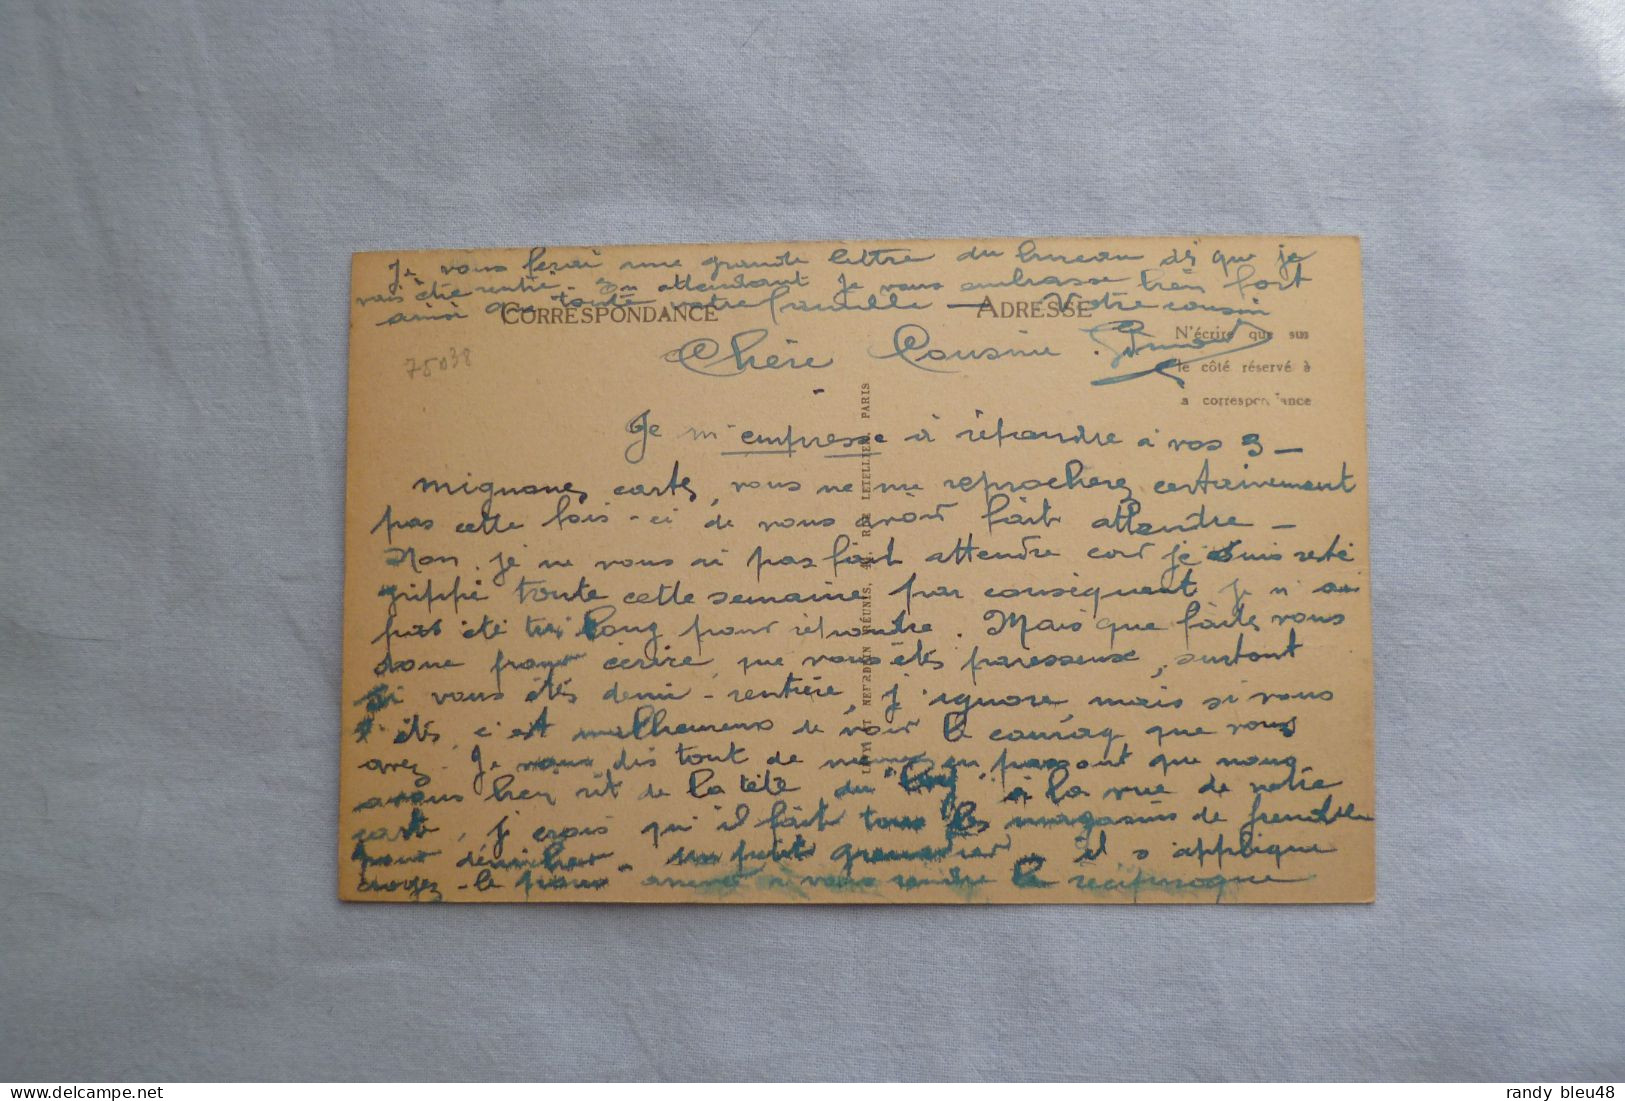 Je vous ferai une grande lettre du bureau dès que je
vais être rentré. En attendant je vous embrasse bien fort
ainsi que toute votre famille — Votre cousin
CORRESPONDANCE
ADRESSE
N'écrire que sur
le côté réservé à
la correspondance
75038
Chère Cousine
LÉVY ET NEURDEIN RÉUNIS, 44, RUE LETELLIER, PARIS
Je m'empresse à répondre à vos 3 —
mignones cartes, vous ne me reprocherez certainement
pas cette fois-ci de vous avoir fait attendre —
Non, je ne vous ai pas fait attendre car je suis resté
grippé toute cette semaine par conséquent je n'ai
pas été très long pour répondre. Mais que faites vous
donc pour écrire, que vous êtes paresseuse, surtout
si vous êtes demi-rentière, j'ignore mais si vous
l'êtes, c'est malheureux de voir le courage que vous
avez. Je vous dis tout de même en passant que nous
avons bien rit de la tête du à la vue de votre
carte, je crois qu'il fait tous les magasins de
pour dénicher un petit il s'applique
croyez-le pour arriver à vous rendre la réciproque
randy bleu48